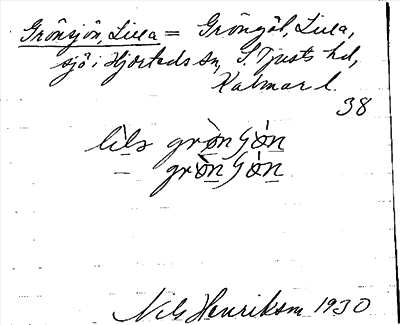 Grönsjön, Lilla = Gröngöl, Lilla,
sjö i Hjorteds sn, S. Tjusts hd,
Kalmar l.
38
lìla grø̀n ʃø̀n
– grø̀n ʃø̀n
Nils Henrikson 1930